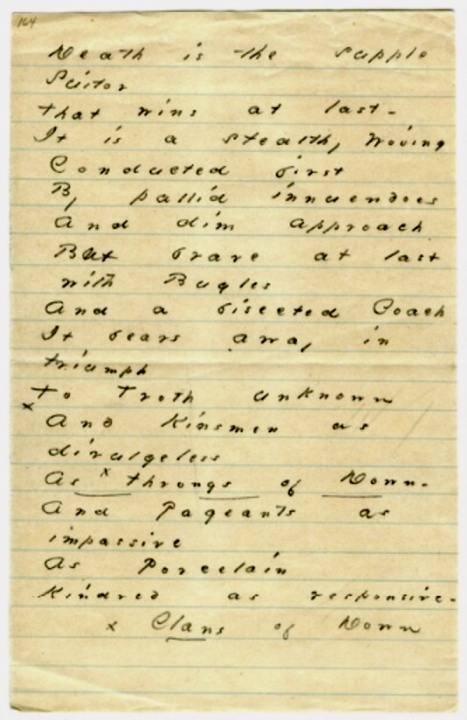 164
Death is the supple
Suitor
That wins at last -
It is a stealthy Wooing
Conducted first
By pallid innuendoes
And dim approach
But brave at last
with Bugles
And a bisected Coach
It bears away in
triumph
To Troth unknown
x And Kinsmen as
divulgeless
As x throngs of Down -
And Pageants as
impassive
As Porcelain
Kindred as responsive -
x Clans of Down